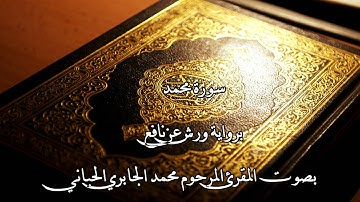 سورة محمد
برواية ورش عن نافع
بصوت المقرئ المرحوم محمد الجابري الحياني